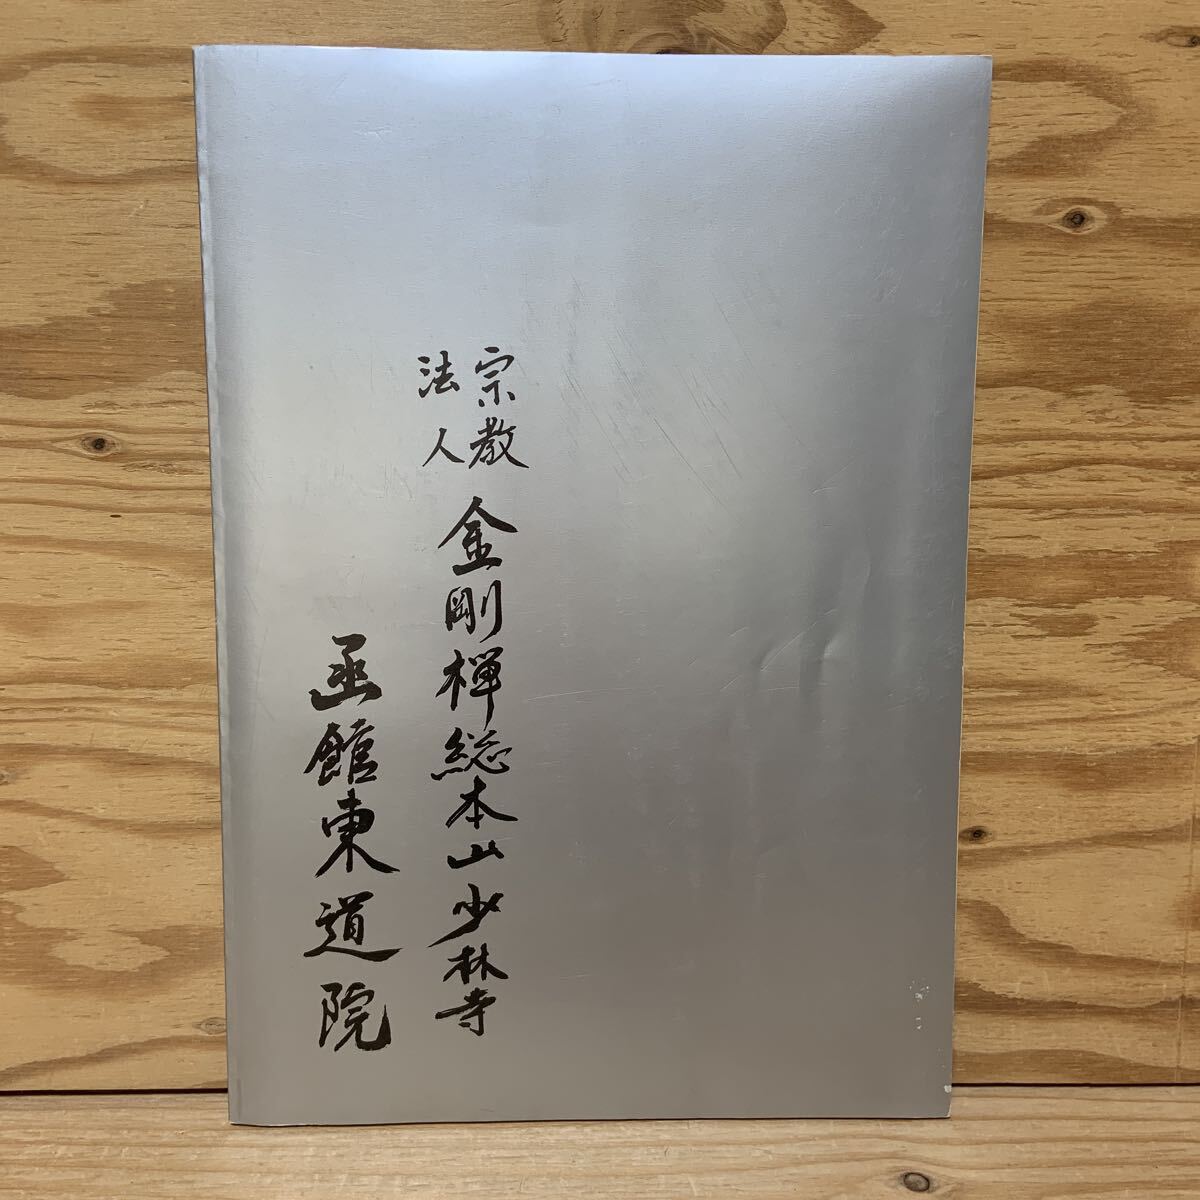 宗教
法人
金剛禅総本山少林寺
函館東道院